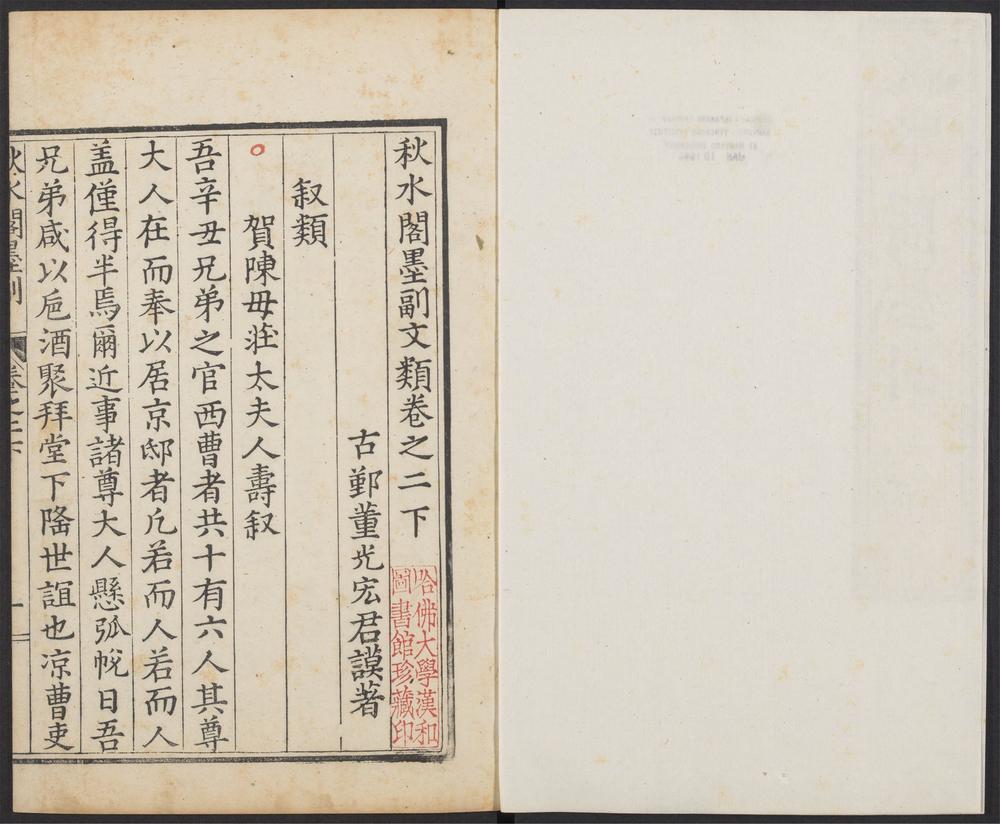 秋水閣墨副文類卷之二下
古鄞董光宏君謨著
哈佛大學漢和
圖書館珍藏印
叙類
賀陳母莊太夫人壽叙
吾辛丑兄弟之官西曹者共十有六人其尊
大人在而奉以居京邸者凡若而人若而人
盖僅得半焉爾近事諸尊大人懸弧帨日吾
兄弟咸以巵酒聚拜堂下隆世誼也凉曹吏
秋水閣墨副
卷之二下
一